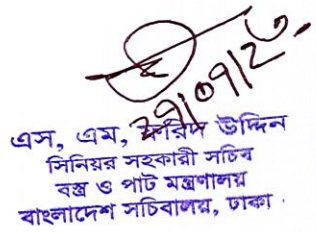 এস, এম, ফরিদ উদ্দিন
সিনিয়র সহকারী সচিব
বস্ত্র ও পাট মন্ত্রণালয়
বাংলাদেশ সচিবালয়, ঢাকা